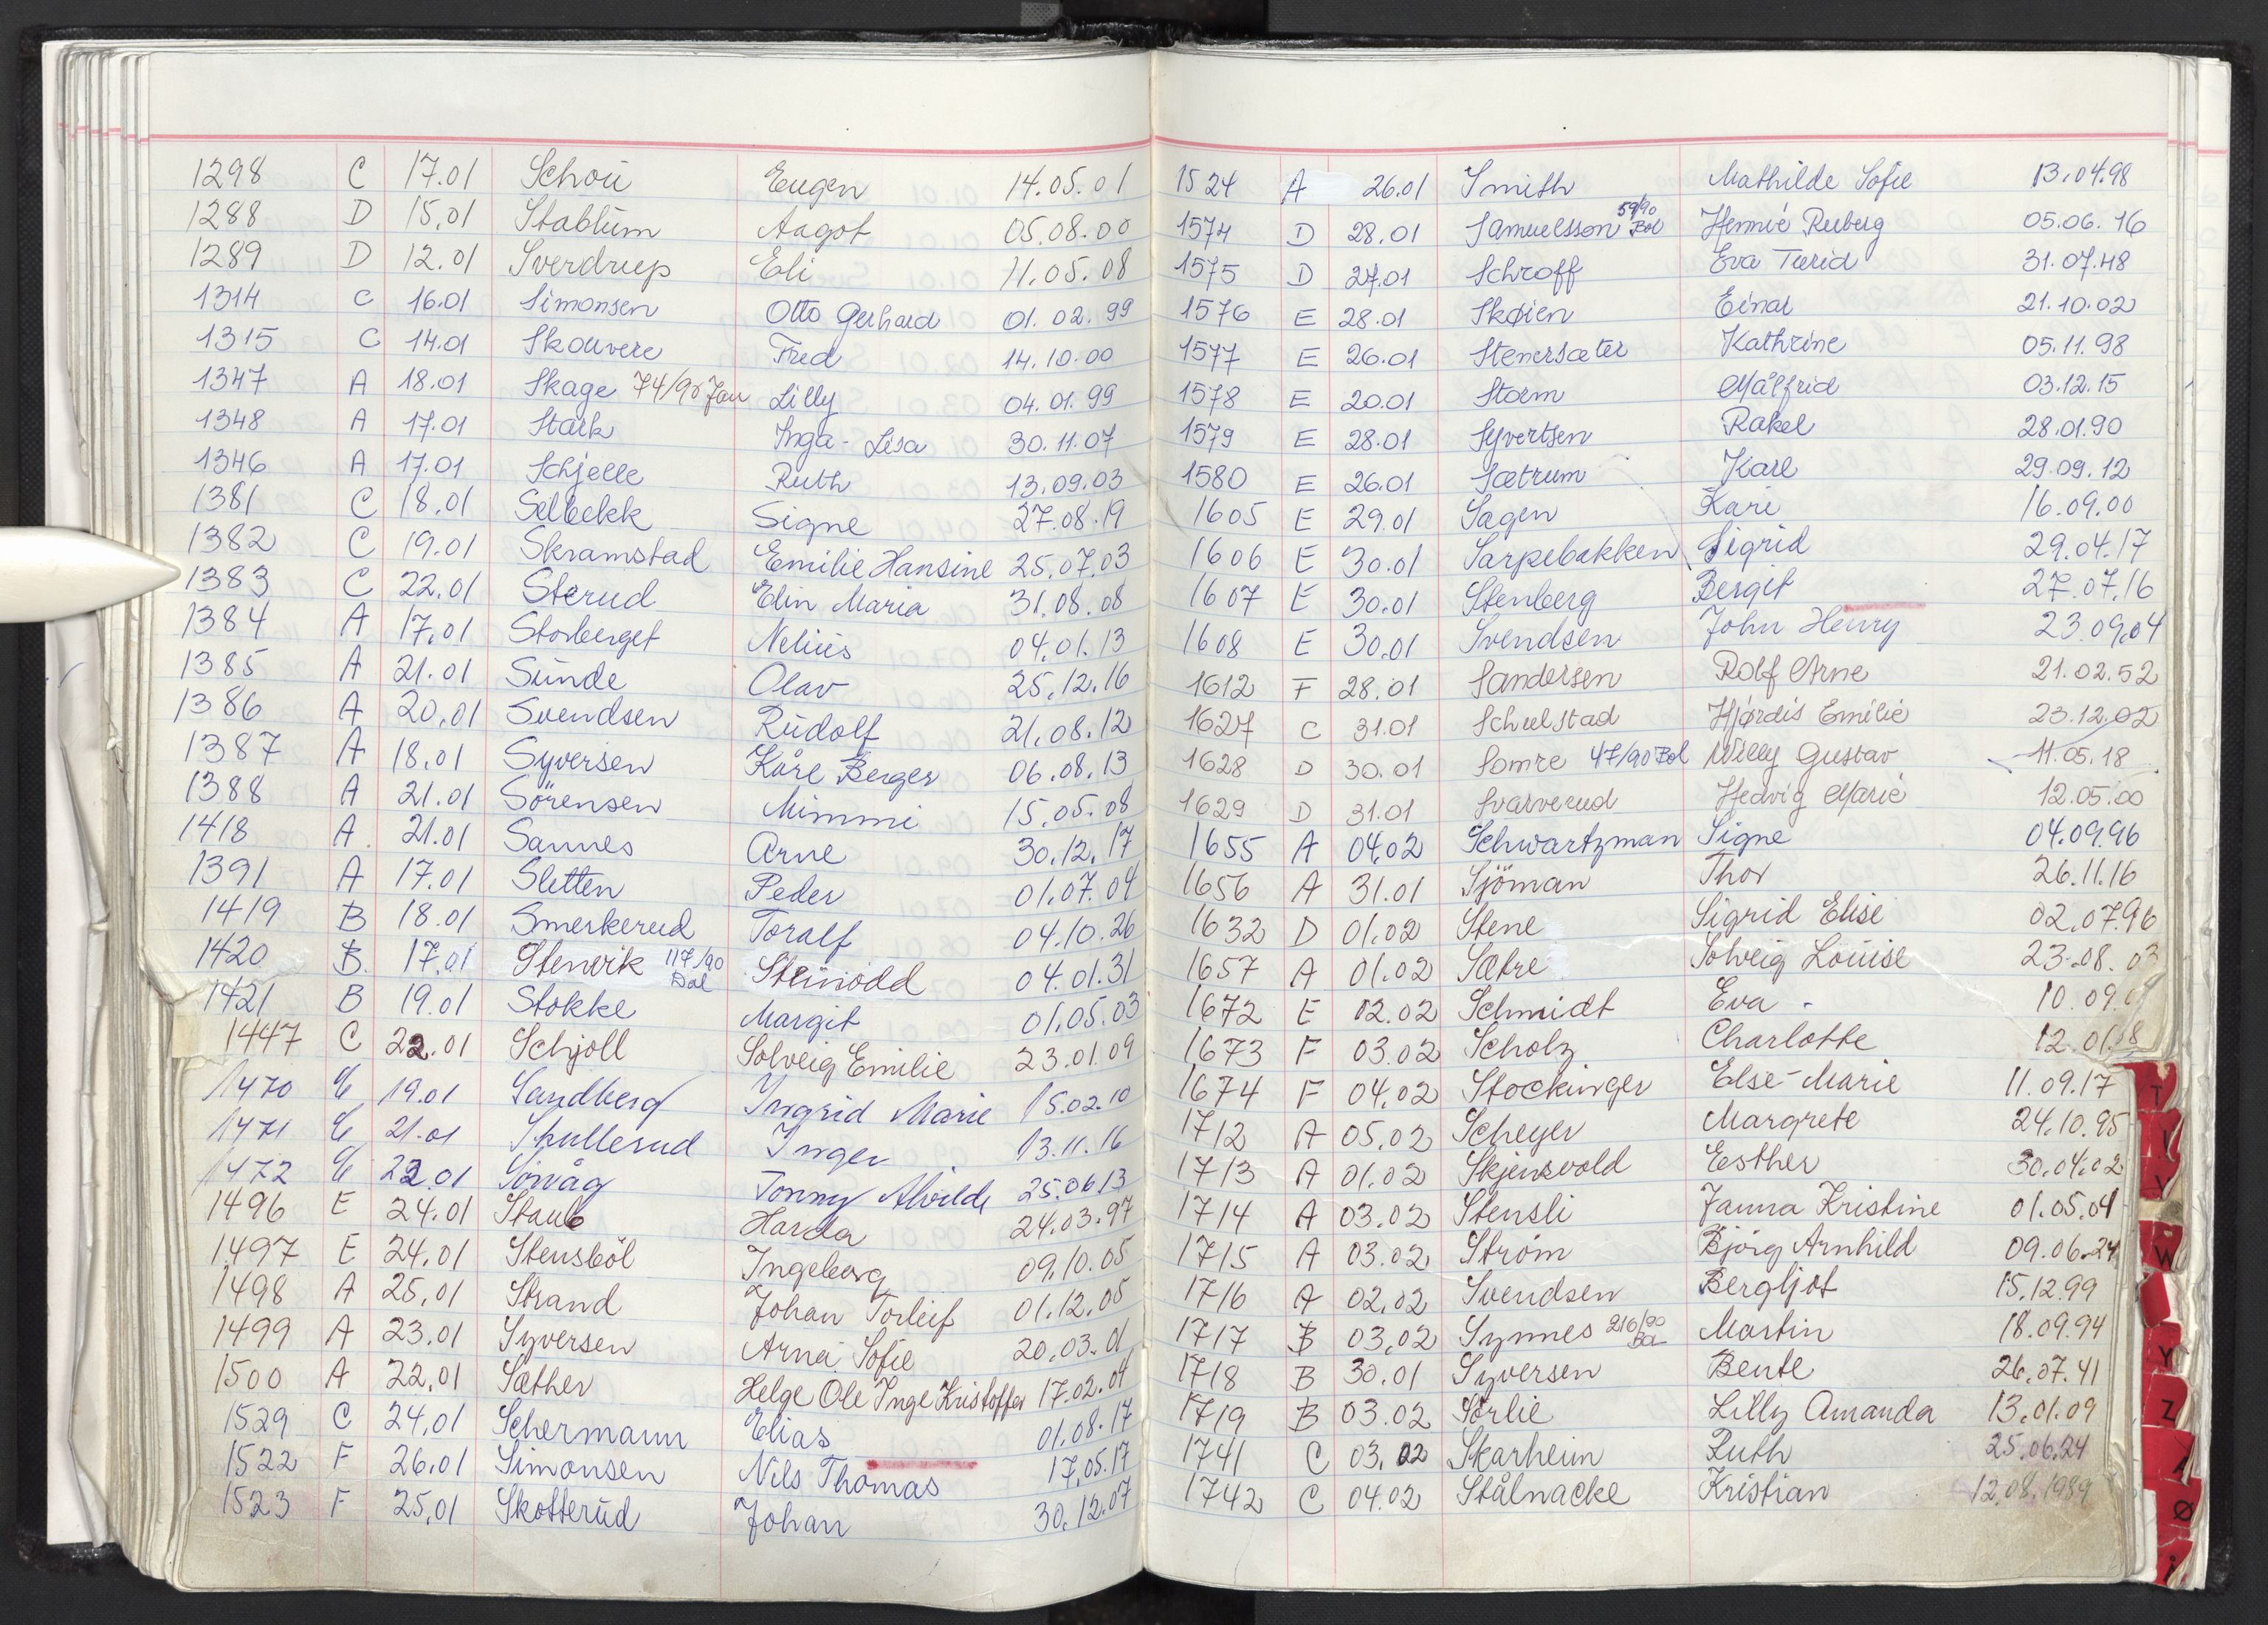 1298 C 17.01 Schou Eugen 14.05.01
1288 D 15.01 Stablum Aagot 05.08.00
1289 D 12.01 Sverdrup Eli 11.05.08
1314 C 16.01 Simonsen Otto Gerhard 01.02.99
1315 C 14.01 Skouvere Fred 14.10.00
1347 A 18.01 Skage 74/90 Jan Lilly 04.01.99
1348 A 17.01 Stark Inga-Lisa 30.11.07
1346 A 17.01 Schjelle Ruth 13.09.03
1381 C 18.01 Selbekk Signe 27.08.19
1382 C 19.01 Skramstad Emilie Hansine 25.07.03
1383 C 22.01 Sterud Elin Maria 31.08.08
1384 A 17.01 Storberget Nelius 04.01.13
1385 A 21.01 Sunde Olav 25.12.16
1386 A 20.01 Svendsen Rudolf 21.08.12
1387 A 18.01 Syversen Kåre Berger 06.08.13
1388 A 21.01 Sörensen Mimmi 15.05.08
1418 A 21.01 Sannes Arne 30.12.17
1391 A 17.01 Sletten Peder 01.07.04
1419 B 18.01 Smerkerud Toralf 04.10.26
1420 B 17.01 Stenvik 117/90 Bol Steinodd 04.01.31
1421 B 19.01 Stokke Margit 01.05.03
1447 C 22.01 Schjoll Solveig Emilie 23.01.09
1470 C 19.01 Sandberg Ingrid Marie 15.02.10
1471 C 21.01 Skullerud Inger 13.11.16
1472 C 22.01 Sörvåg Tonny Alvilde 25.06.13
1496 E 24.01 Staub Harda 24.03.97
1497 E 24.01 Stensböl Ingeborg 09.10.05
1498 A 25.01 Strand Johan Torleif 01.12.05
1499 A 23.01 Syversen Arna Sofie 20.03.01
1500 A 22.01 Sæther Helge Ole Inge Kristoffer 17.02.01
1529 C 24.01 Schermann Elias 01.08.17
1522 F 26.01 Simonsen Nils Thomas 17.05.17
1523 F 25.01 Skotterud Johan 30.12.07
1524 A 26.01 Smith Mathilde Sofie 13.04.98
1574 D 28.01 Samuelsson 59/90 Bol Hennie Ruberg 05.06.16
1575 D 27.01 Schroff Eva Turid 31.07.48
1576 E 28.01 Skøien Einar 21.10.02
1577 E 26.01 Stenersæter Kathrine 05.11.98
1578 E 20.01 Storm Målfrid 03.12.15
1579 E 28.01 Syvertsen Rakel 28.01.90
1580 E 26.01 Sætrum Karl 29.09.12
1605 E 29.01 Sagen Kari 16.09.00
1606 E 30.01 Sarpebakken Sigrid 29.04.17
1607 E 30.01 Stenberg Bergit 27.07.16
1608 E 30.01 Svendsen John Henry 23.09.04
1612 F 28.01 Sandersen Rolf Arne 21.02.52
1627 C 31.01 Schulstad Hjørdis Emilie 23.12.02
1628 D 30.01 Somre 47/90 Bol Willy Gustav 11.05.18
1629 D 31.01 Svarverud Hedvig Marie 12.05.00
1655 A 04.02 Schwartzman Signe 04.09.96
1656 A 31.01 Sjöman Thor 26.11.16
1632 D 01.02 Stene Sigrid Elise 02.07.96
1657 A 01.02 Sætre Solveig Louise 23.08.03
1672 E 02.02 Schmidt Eva 10.09.
1673 F 03.02 Scholz Charlotte 12.01.
1674 F 04.02 Stockinger Else-Marie 11.09.17
1712 A 05.02 Scheyer Margrete 24.10.95
1713 A 01.02 Skjensvold Esther 30.04.02
1714 A 03.02 Stensli Janna Kristine 01.05.04
1715 A 03.02 Ström Bjørg Arnhild 09.06.24
1716 A 02.02 Svendsen Bergljot 15.12.99
1717 B 03.02 Synnes 216/90 Bol Martin 18.09.94
1718 B 30.01 Syversen Bente 26.07.41
1719 B 03.02 Sörlie Lilly Amanda 13.01.09
1741 C 03.02 Skarheim Ruth 25.06.24
1742 C 04.02 Stålnacke Kristian 12.08.1989
T
V
W
Y
Z
Ø